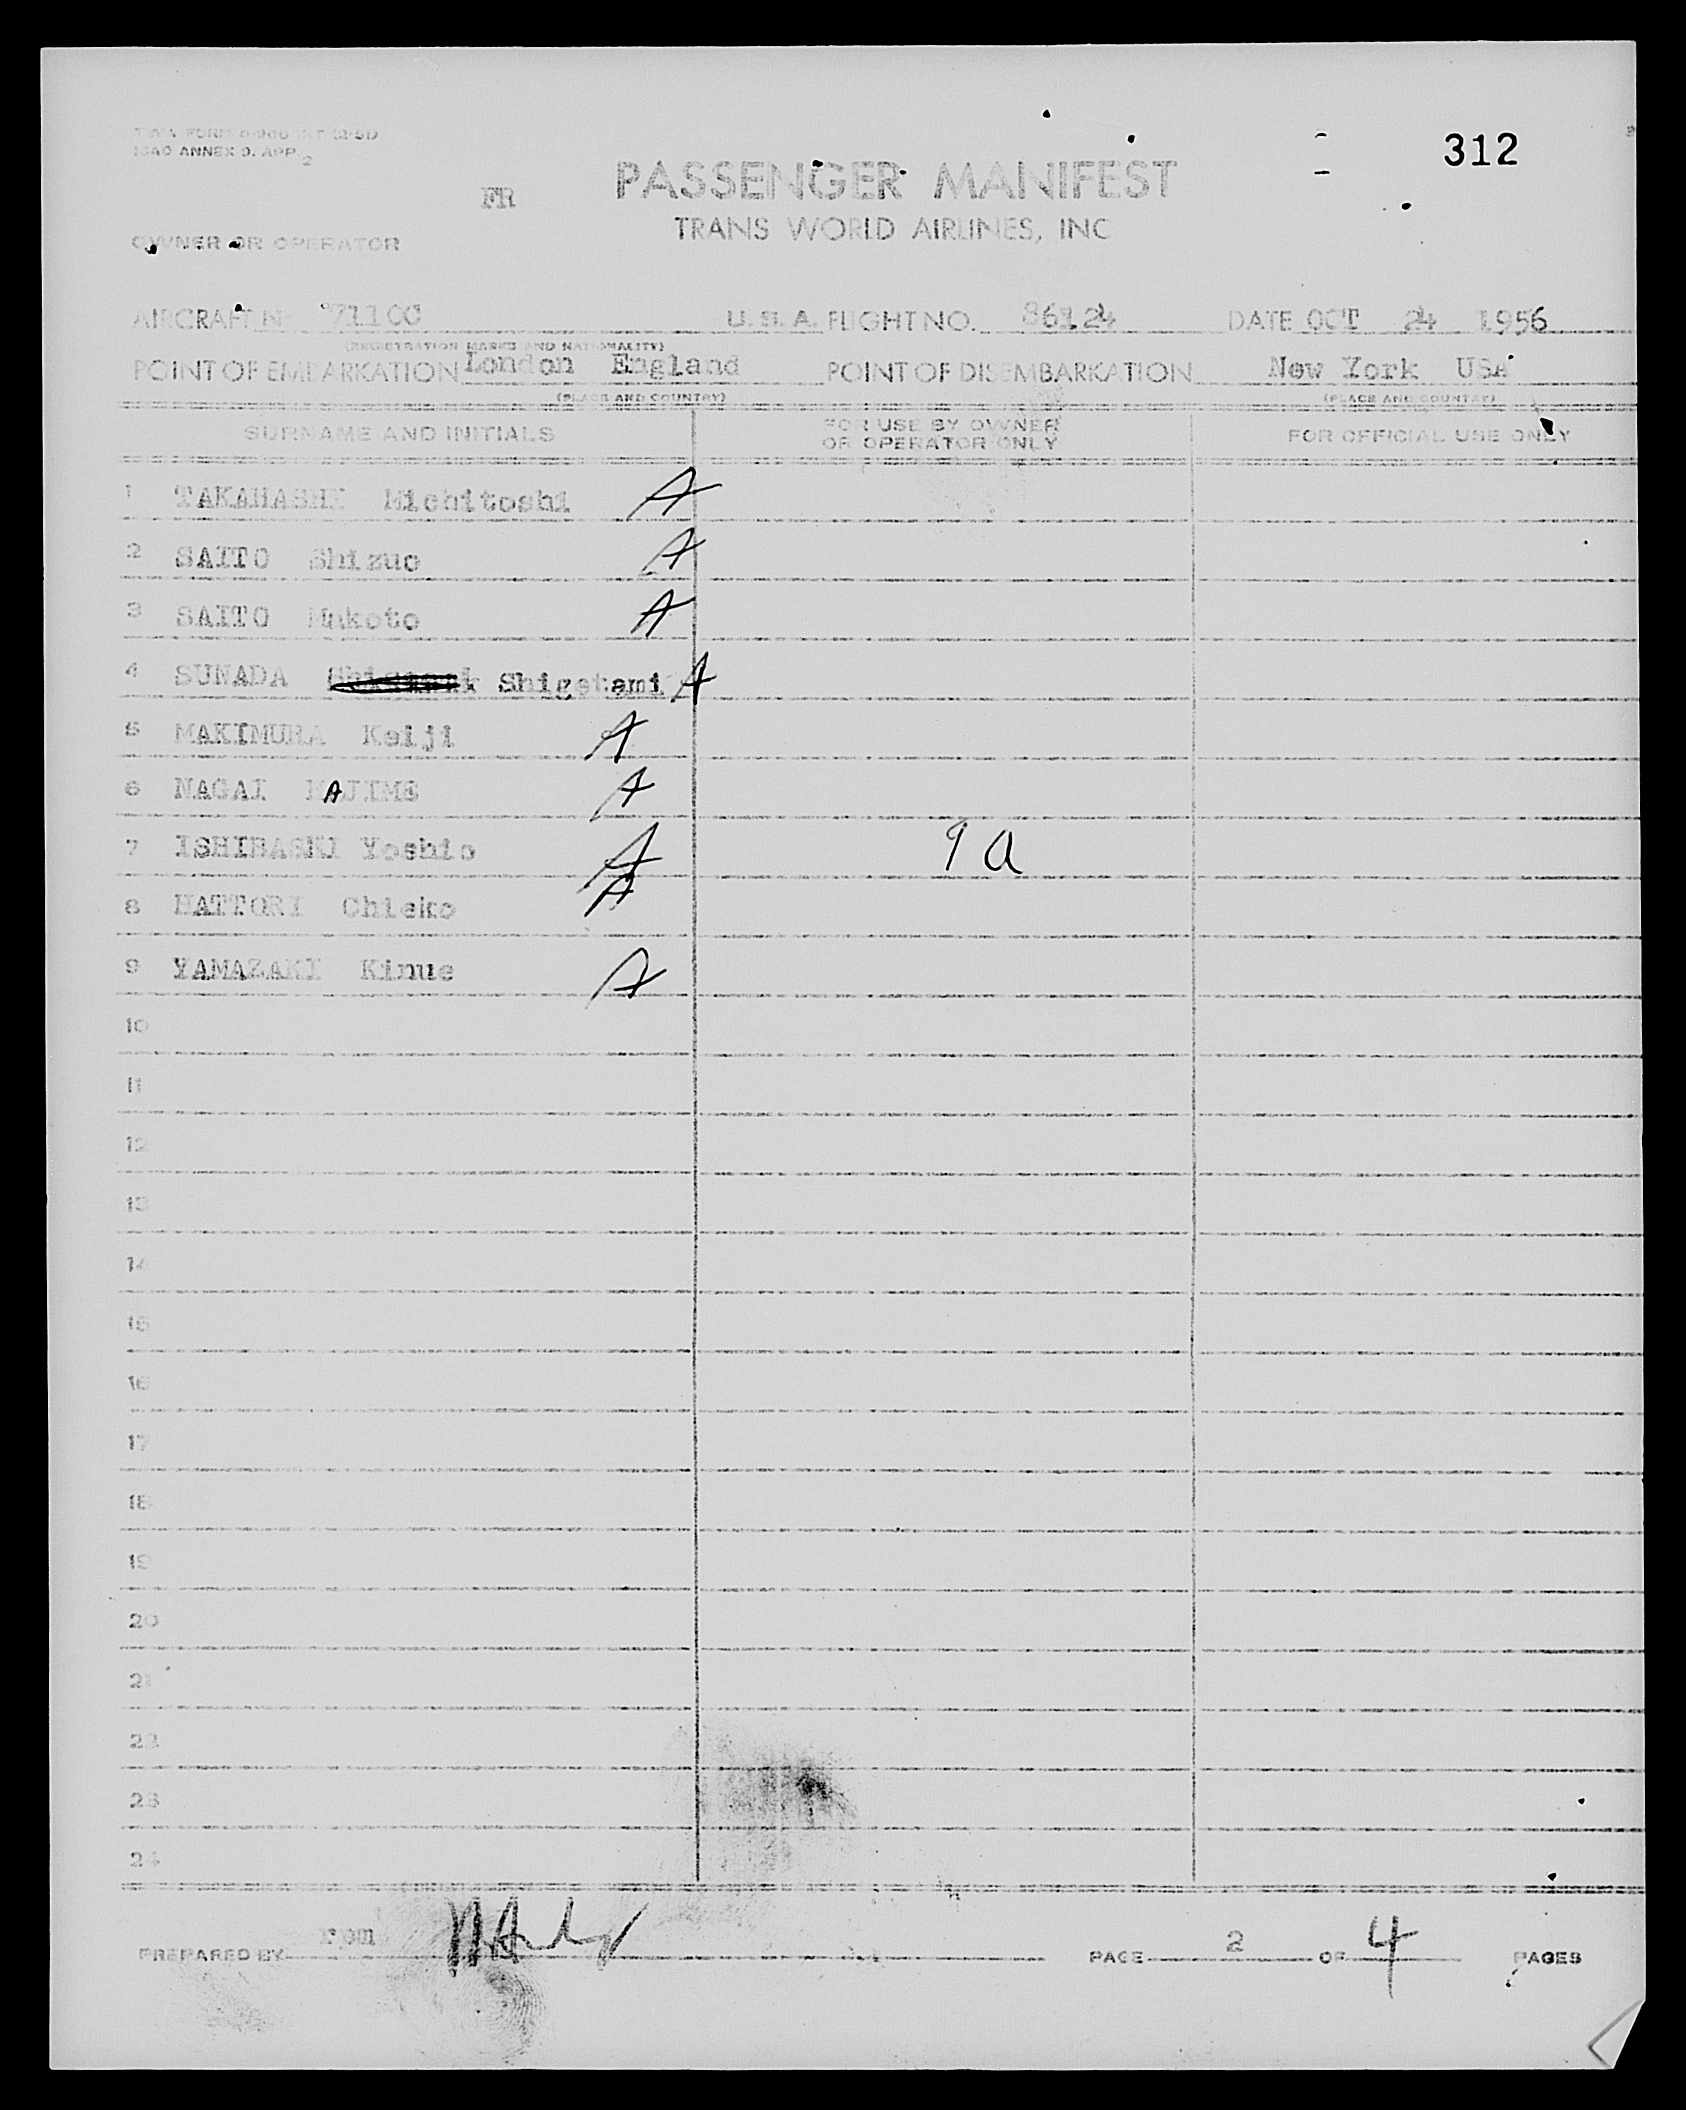 312
ICAO ANNEX 9. APP 2
FR
PASSENGER MANIFEST
TRANS WORLD AIRLINES, INC
OWNER OR OPERATOR
AIRCRAFT 7110C U.S.A. FLIGHT NO. 86124 DATE OCT 24 1956
(REGISTRATION MARKS AND NATIONALITY)
POINT OF EMBARKATION London England POINT OF DISEMBARKATION New York USA
(PLACE AND COUNTRY) (PLACE AND COUNTRY)
SURNAME AND INITIALS FOR USE BY OWNER OR OPERATOR ONLY FOR OFFICIAL USE ONLY
1 TAKAHASHI Michitoshi A
2 SAITO Shizuo A
3 SAITO Makoto A
4 SUNADA Shigetami A
5 MAKIMURA Keiji A
6 NAGAI HAJIME A
7 ISHIBASHI Yoshio A 9 a
8 HATTORI Chieko A
9 YAMAZAKI Kinue A
10
11
12
13
14
15
16
17
18
19
20
21
22
23
24
PREPARED BY PAGE 2 OF 4 PAGES